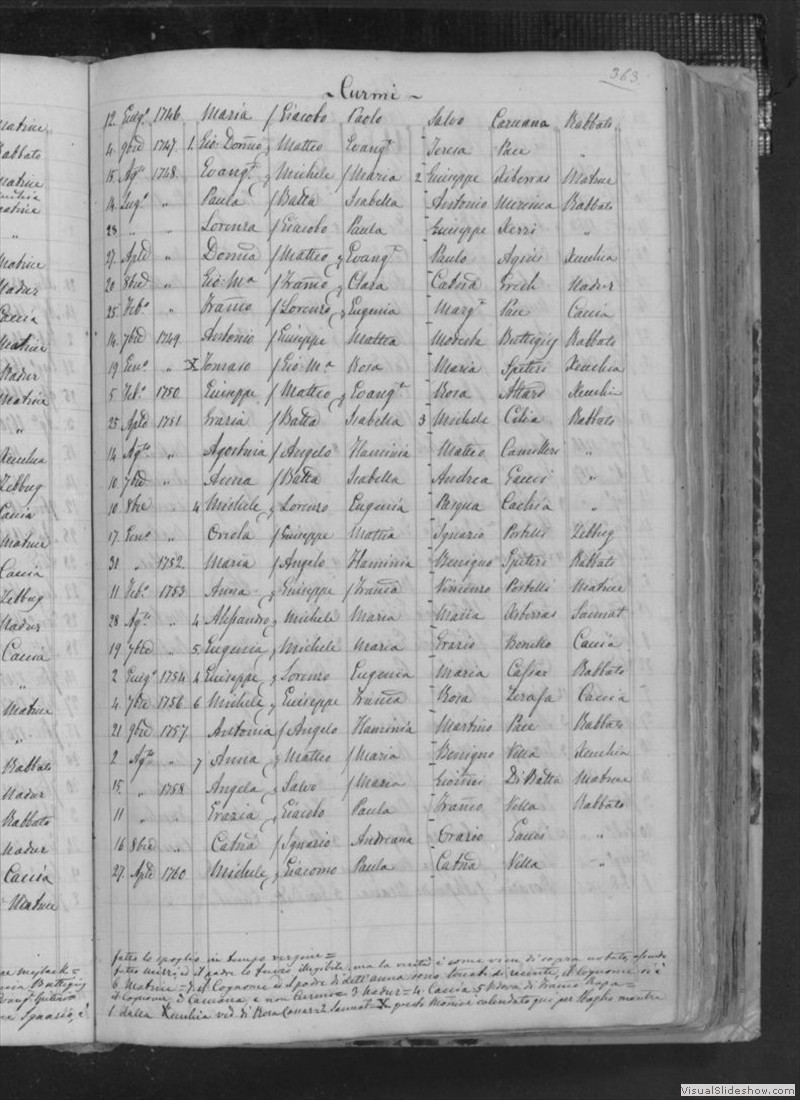 363
~ Curmi ~
12. Giug.º 1746 Maria f Giacobo Paolo Salvo Caruana Rabbato
4. 9bre 1747 1. Gio: Dom̃co Matteo Evang.ta Teresa Pace "
15. Ag.to 1748 Evang.ta Michele f Maria 2 Giuseppe Xiberras Matrice
14. Lug.º " Paula f Batta Isabella Antonio Rabbato
28 " " Lorenza f Giacobo Paula Giuseppe Xerri "
27. Aple " Dom̃ca f Matteo Evang.ta Paulo Agius Xeuchia
20 8bre " Gio: M.a f Fran̄co Clara Catñā Grech Nadur
25 Feb.º " Fran̄co f Lorenzo Eugenia Marg.ta Pace Caccia
14. 7bre 1749. Antonio f Giuseppe Mattea Modesta Buttigieg Rabbato
19 Gen.º " X Tomaso f Gio: M.a Rosa Maria Spiteri Xeuchia
5 Feb.º 1750 Giuseppe f Matteo Evang.ta Rosa Attard Xeuchia
25 Aple 1751 Grazia f Batta Isabella 3 Michele Celia Rabbato
14 Ag.to " Agostina f Angelo Flaminia Matteo Camilleri "
10 7bre " Anna f Batta Isabella Andrea Gauci "
10 8bre " 4 Michele Lorenzo Eugenia Pasqua Cachia "
17. Gen.º " Oriola f Giuseppe Mattea Ignazio Portelli Zebbug
31 " 1752. Maria f Angelo Flaminia Benigno Spiteri Rabbato
11 Feb.º 1753 Anna Giuseppe f Fran̄ca Vincenzo Portelli Matrice
28 Ag.to " 4 Alessandro Michele Maria Maria Xiberras Sannat
19 7bre " 5. Eugenia Michele Maria Grazio Bonello Caccia
2 Giug.º 1754 4 Giuseppe Lorenzo Eugenia Maria Cassar Rabbato
4. 7bre 1756 6 Michele Giuseppe Fran̄ca Rosa Zerafa Caccia
21 9bre 1757. Antonia f Angelo Flaminia Martino Pace Rabbato
2 Ag.to " 7 Anna Matteo f Maria Benigno Vella Xeuchia
15. " 1758 Angela Salvo f Maria Di Batta Matrice
11 " Grazia Giacobo Paula Fran̄co Vella Rabbato
16 8bre " Catñā f Ignazio Andreana Grazio Gauci "
27. Aple 1760 Michele Giacomo Paula Catñā Vella "
fatto lo spoglio in tempo vergine=
il padre lo trovai illegibile, ma la verità è come vien di sopra notato,
6 Matrice = 7. il Cognome ed il padre di dett'anna sono toccati di recente, il cognome
il cognome, 3 Camona, e non Curmi = 3 Nadur = 4. Caccia = 5 Vedova di Franco
1. dalla Xeuchia ved. di Rosa 2 Sannat = X questo qui per
Matrice
Rabbato
Matrice
Matrice
Nadur
Caccia
Matrice
Nadur
Matrice
"
Xeuchia
Zebbug
Caccia
Matrice
Caccia
Zebbug
Nadur
Caccia
"
Matrice
"
Rabbato
Nadur
Rabbato
Nadur
Caccia
Matrice
VisualSlideshow.com